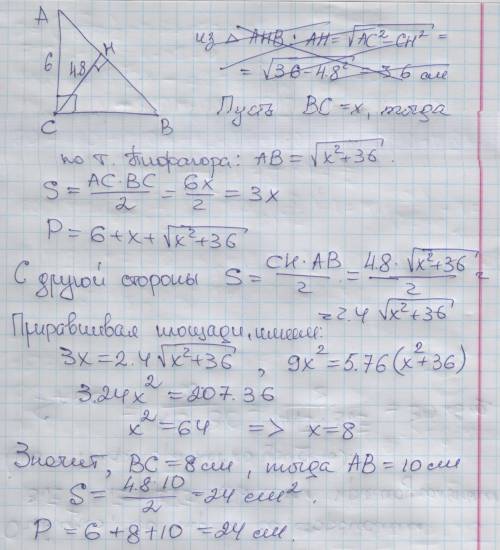 A
H
6
4.8
C
B
из △ AHB: AH = √AC²-CH² =
= √36-4.8² = 3.6 см
Пусть BC = x, тогда
по т. Пифагора: AB = √x²+36.
S = AC·BC/2 = 6x/2 = 3x
P = 6+x+√x²+36
С другой стороны S = CH·AB/2 = 4.8·√x²+36/2 =
= 2.4 √x²+36
Приравнивая площади, имеем:
3x = 2.4 √x²+36, 9x² = 5.76(x²+36)
3.24x² = 207.36
x² = 64 => x = 8
Значит, BC = 8 см, тогда AB = 10 см
S = 4.8·10/2 = 24 см².
P = 6+8+10 = 24 см.